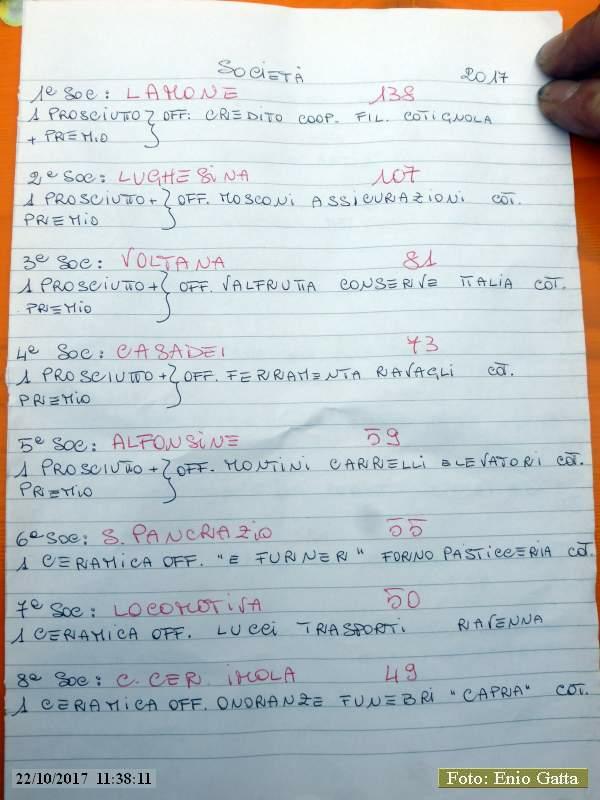 SOCIETÀ 2017
1e SOC: LAMONE 138
1 PROSCIUTTO } OFF. CREDITO COOP. FIL. COTIGNOLA
+ PREMIO
2e SOC: LUGHESINA 107
1 PROSCIUTTO + { OFF. MOSCONI ASSICURAZIONI COT.
PREMIO
3e SOC: VOLTANA 81
1 PROSCIUTTO + { OFF. VALFRUTTA CONSERVE ITALIA COT.
PREMIO
4e SOC: CASADEI 73
1 PROSCIUTTO + { OFF. FERRAMENTA RAVAGLI COT.
PREMIO
5e SOC: ALFONSINE 59
1 PROSCIUTTO + { OFF. MONTINI CARRELLI ELEVATORI COT.
PREMIO
6e SOC: S. PANCRAZIO 55
1 CERAMICA OFF. "E FURNER" FORNO PASTICCERIA COT.
7e SOC: LOCOMOTIVA 50
1 CERAMICA OFF. LUCCI TRASPORTI RAVENNA
8e SOC: C. CER. IMOLA 49
1 CERAMICA OFF. ONORANZE FUNEBRI "CAPRA" COT.
22/10/2017 11:38:11
Foto: Enio Gatta